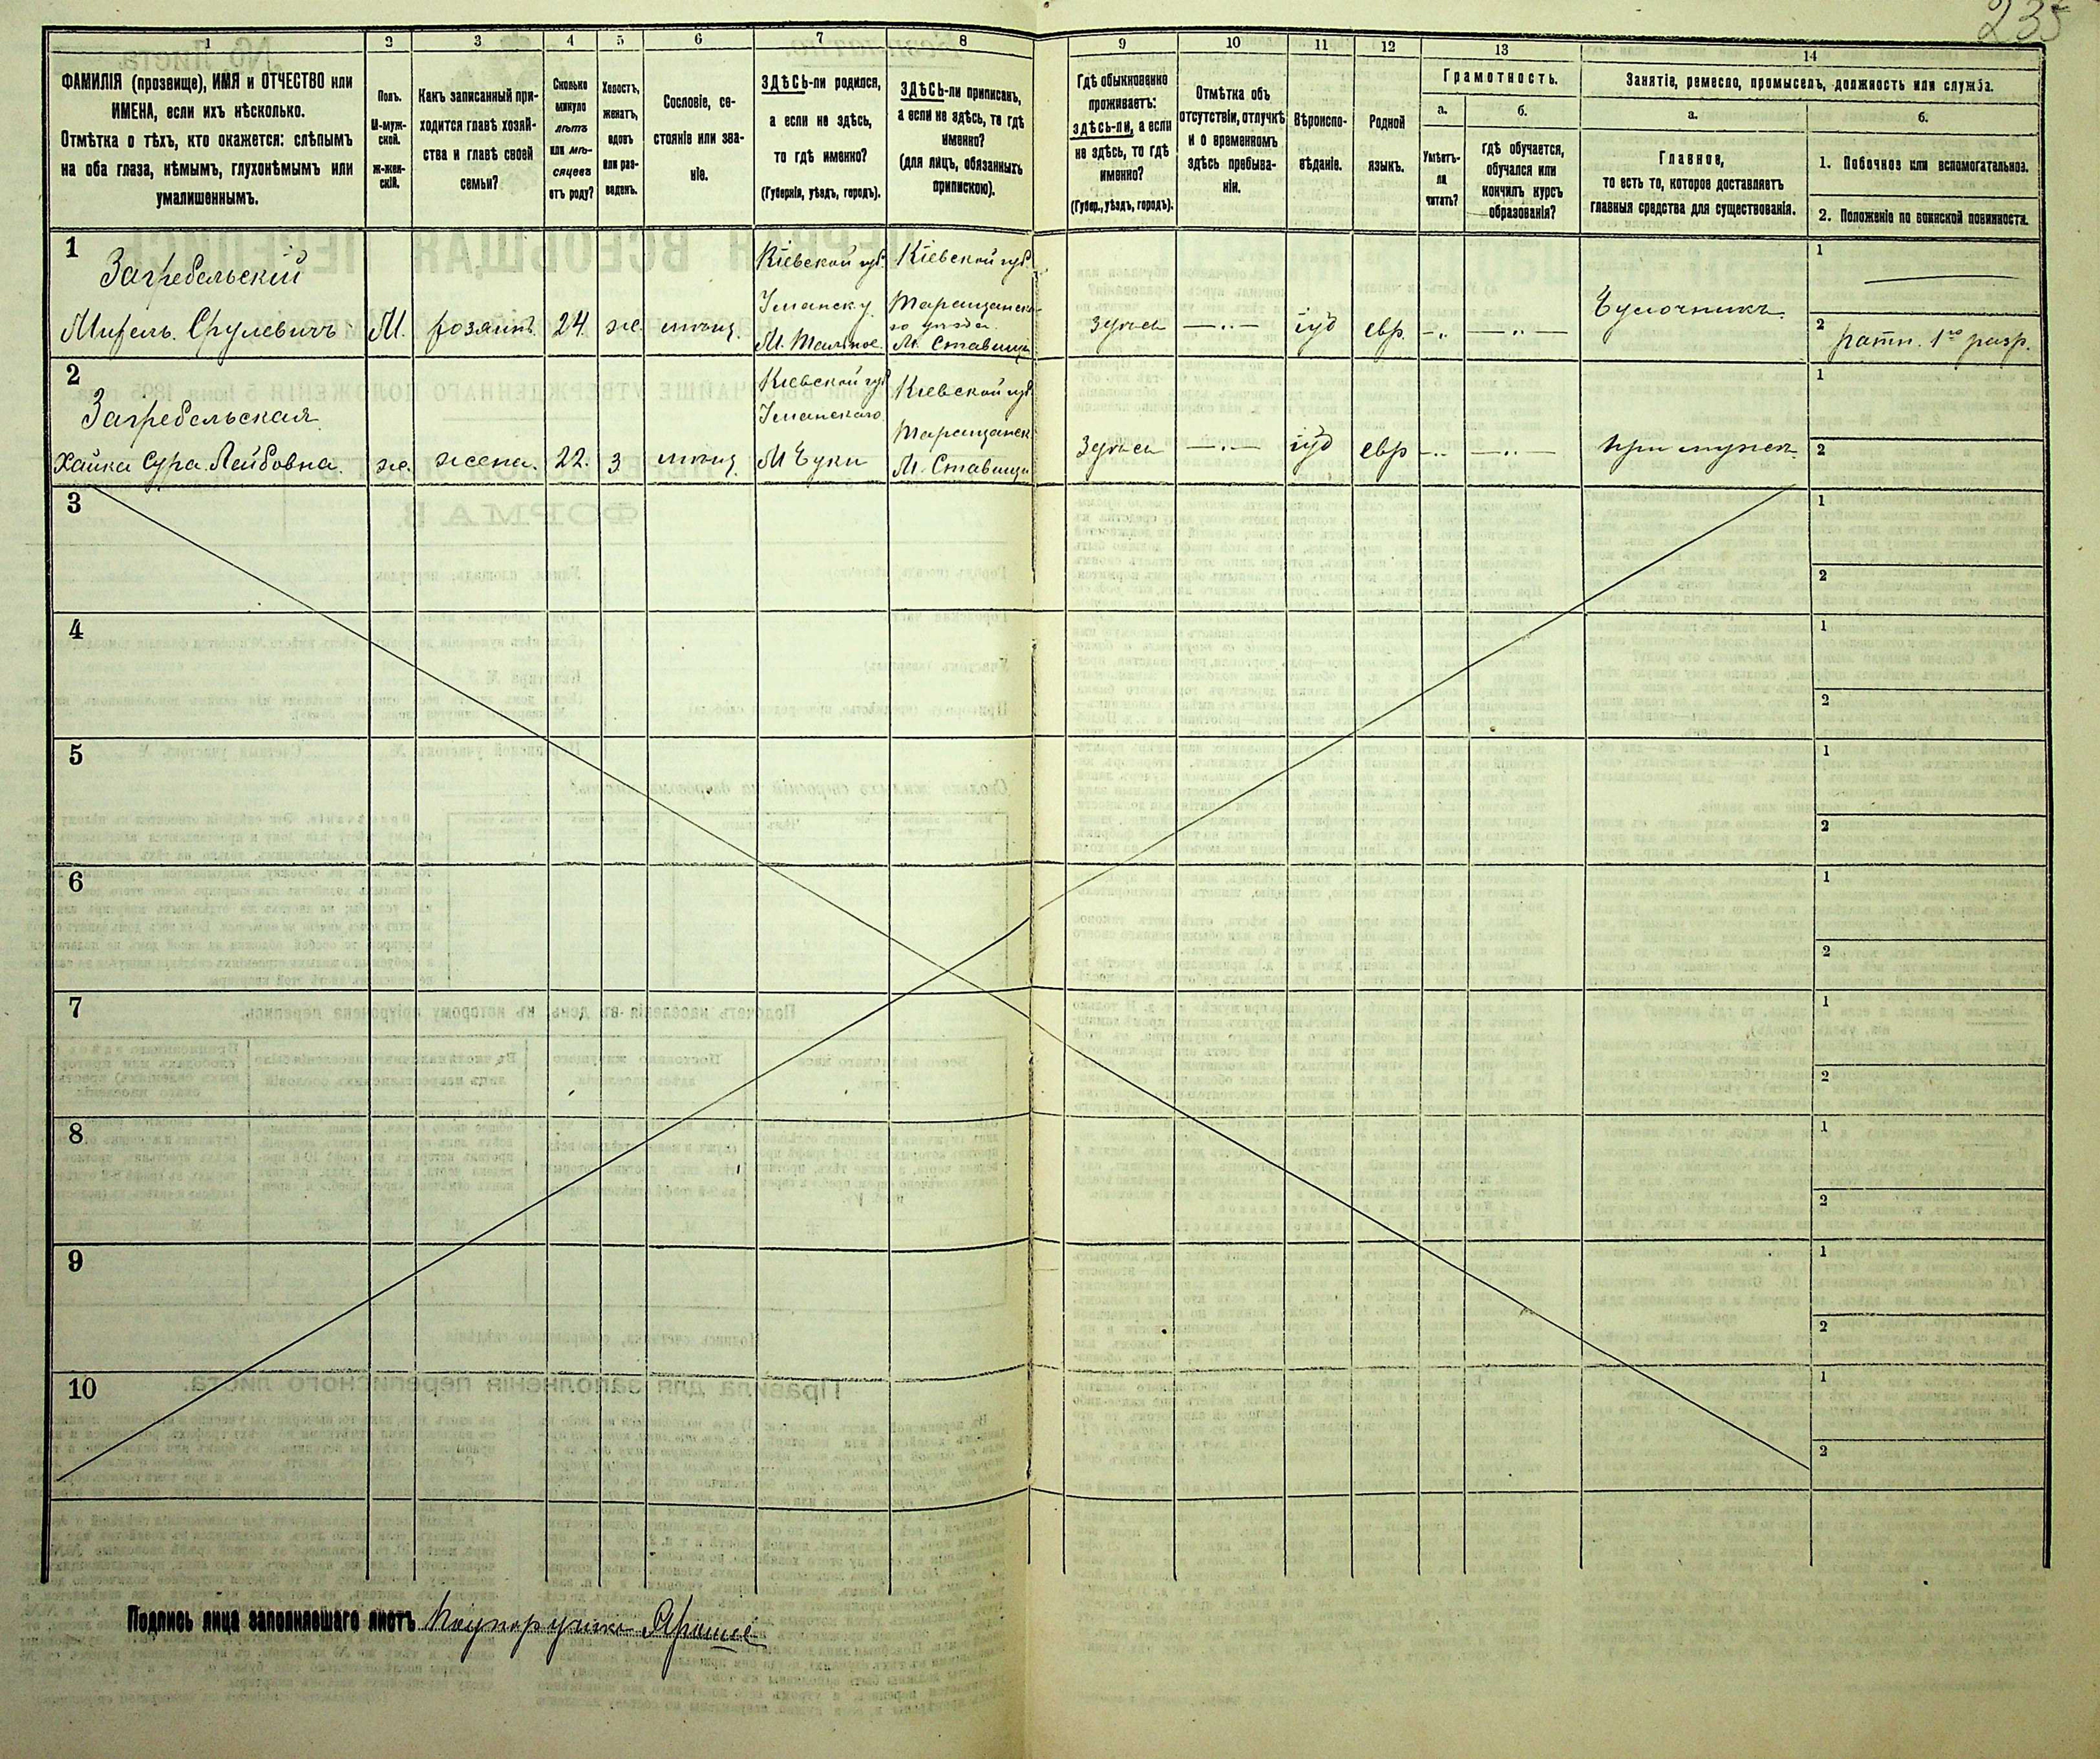 235
1
2
3
4
5
6
7
8
9
10
11
12
13
14
ФАМИЛІЯ (прозвище), ИМЯ и ОТЧЕСТВО или
ИМЕНА, если ихъ нѣсколько.
Отмѣтка о тѣхъ, кто окажется: слѣпымъ
на оба глаза, нѣмымъ, глухонѣмымъ или
умалишеннымъ.
Полъ.
М-муж-
ской.
Ж-жен-
скій.
Какъ записанный при-
ходится главѣ хозяй-
ства и главѣ своей
семьи?
Сколько
минуло
лѣтъ
или мѣ-
сяцевъ
отъ роду?
Холостъ,
женатъ,
вдовъ
или раз-
веденъ.
Сословіе, со-
стояніе или зва-
ніе.
ЗДѢСЬ-ли родился,
а если не здѣсь,
то гдѣ именно?
(Губернія, уѣздъ, городъ).
ЗДѢСЬ-ли приписанъ,
а если не здѣсь, то гдѣ
именно?
(для лицъ, обязанныхъ
припискою).
Гдѣ обыкновенно
проживаетъ:
здѣсь-ли, а если
не здѣсь, то гдѣ
именно?
(Губер., уѣздъ, городъ).
Отмѣтка объ
отсутствіи, отлучкѣ
и о временномъ
здѣсь пребыва-
ніи.
Вѣроиспо-
вѣданіе.
Родной
языкъ.
Грамотность.
а.
Умѣетъ-
ли
читать?
б.
гдѣ обучается,
обучался или
кончилъ курсъ
образованія?
Занятіе, ремесло, промыселъ, должность или служба.
а.
Главное,
то есть то, которое доставляетъ
главныя средства для существованія.
б.
1. Побочное или вспомогательное.
2. Положеніе по воинской повинности.
1
Загребельскій
Срулевичъ М. хозяинъ. 24. же мѣщ.
Кіевской губ.
Уманск у.
М. Тальное.
Кіевской губ.
Таращанска-
го уѣзда.
М. Ставищи
здѣсь —..— іуд евр. -.. —..—
Булочникъ.
1
2 ратн. 1го разр.
2
Загребельская
Хайка Сура Лейбовна. же. жена. 22. з мѣщ.
Кіевской губ
Уманскаго
М Буки
Кіевской губ
Таращанск
М. Ставищи
Здѣсь —..— іуд евр -.. —..—
при мужѣ.
1
2
3
1
2
4
1
2
5
1
2
6
1
2
7
1
2
8
1
2
9
1
2
10
1
2
Подпись лица заполнявшаго листъ